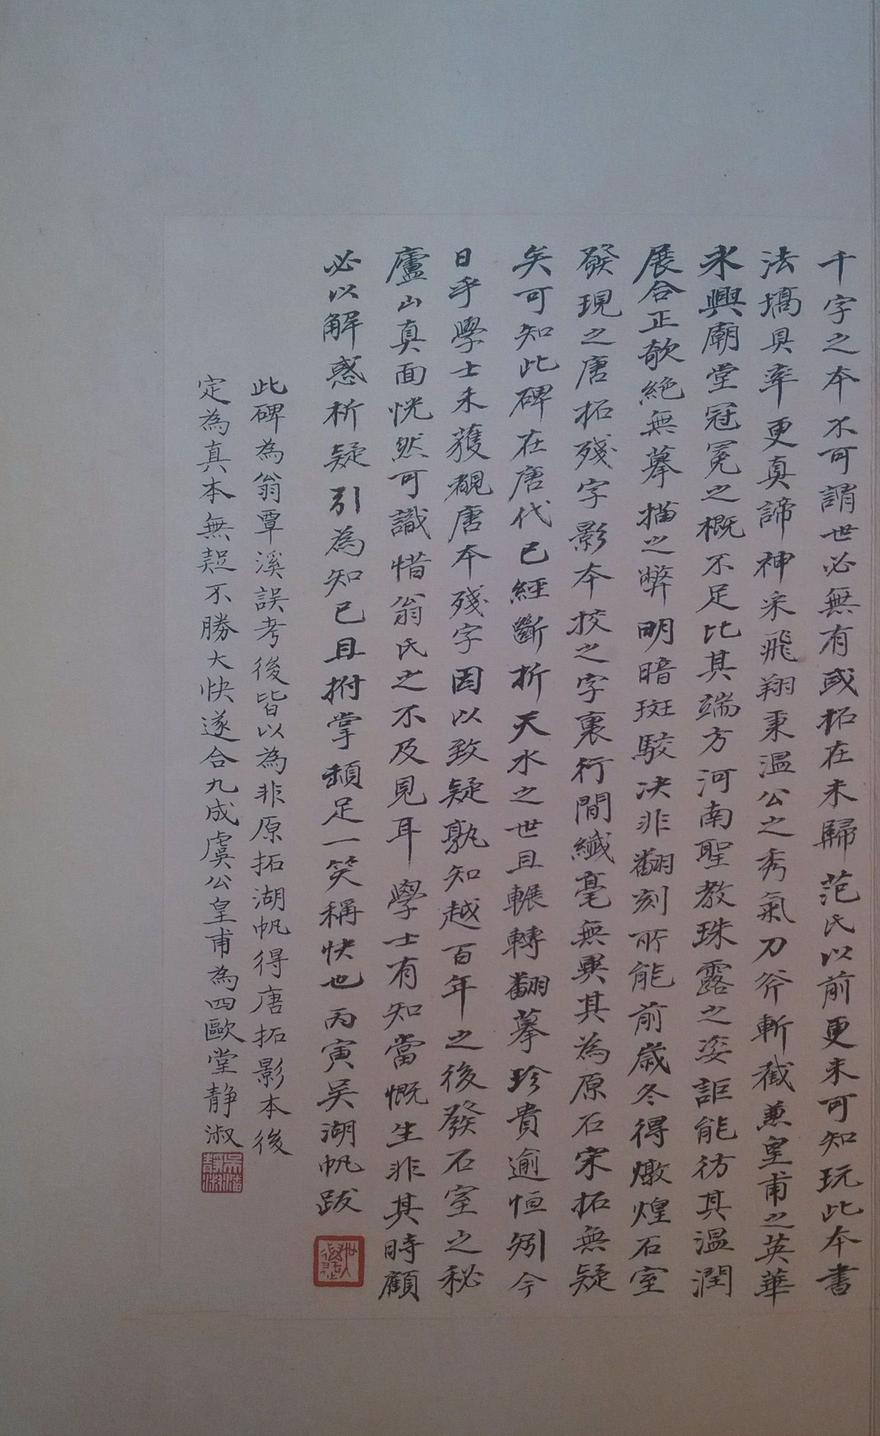 千字之本不可謂世必無有或拓在未歸范氏以前更未可知玩此本書
法搞具率更真諦神采飛翔秉溫公之秀氣刀斧斬截兼皇甫之英華
永興廟堂冠冕之概不足比其端方河南聖教珠露之姿詎能彷其溫潤
展合正欹絕無摹描之弊明暗斑駮决非翻刻所能前歲冬得燉煌石室
發現之唐拓殘字影本挍之字裏行間纖毫無異其為原石宋拓無疑
矣可知此碑在唐代已經斷折天水之世且輾轉翻摹珍貴逾恒矧今
日乎學士未獲覩唐本殘字因以致疑孰知越百年之後發石室之秘
廬山真面恍然可識惜翁氏之不及見耳學士有知當慨生非其時顧
必以解惑析疑引為知已且拊掌頓足一笑稱快也丙寅吴湖帆跋
此碑為翁覃溪誤考後皆以為非原拓湖帆得唐拓影本後
定為真本無疑不勝大快遂合九成虞公皇甫為四歐堂静淑